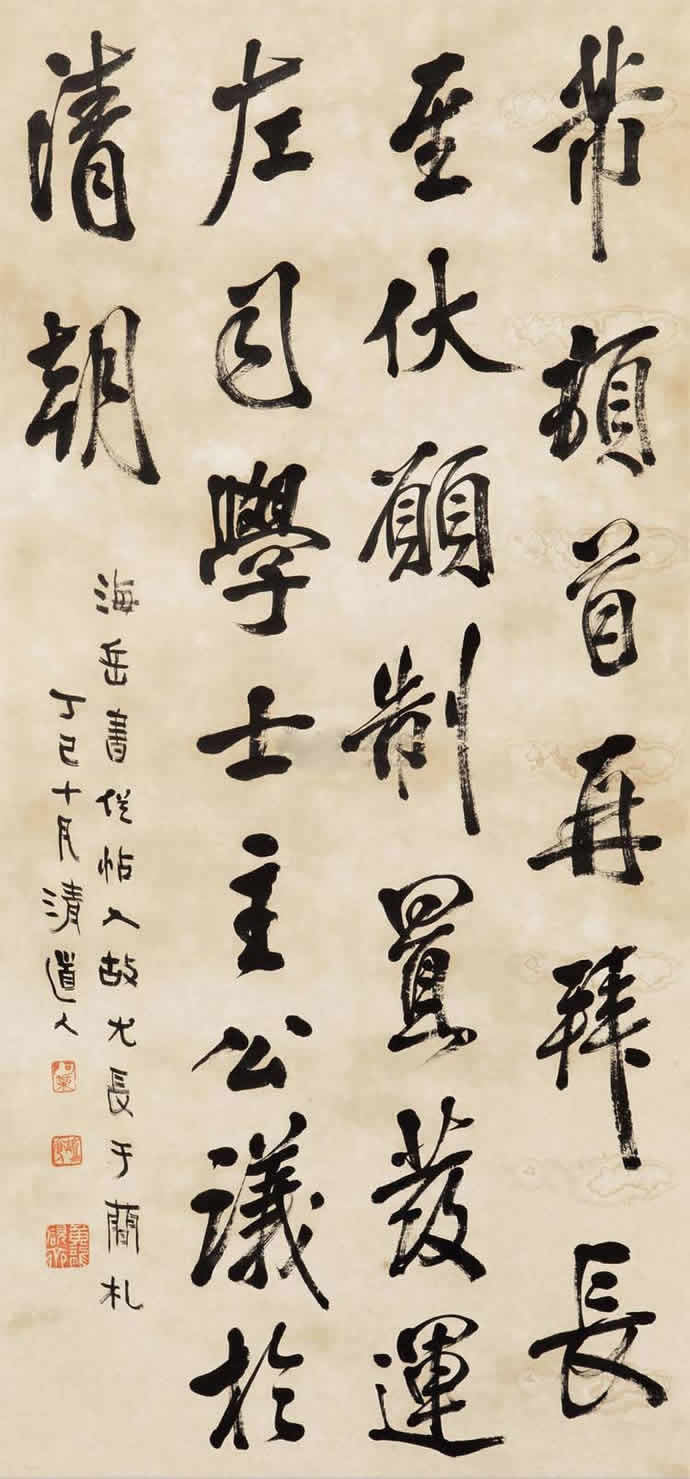 芾頓首再拜長
至伏願制置發運
左司學士主公議於
清朝
海岳書從帖入故尤長于簡札
丁巳十月清道人